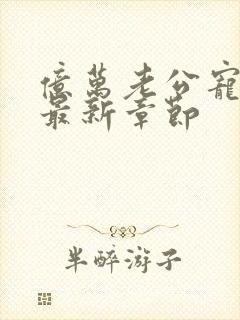 億萬老公寵
最新章節
半醉游子